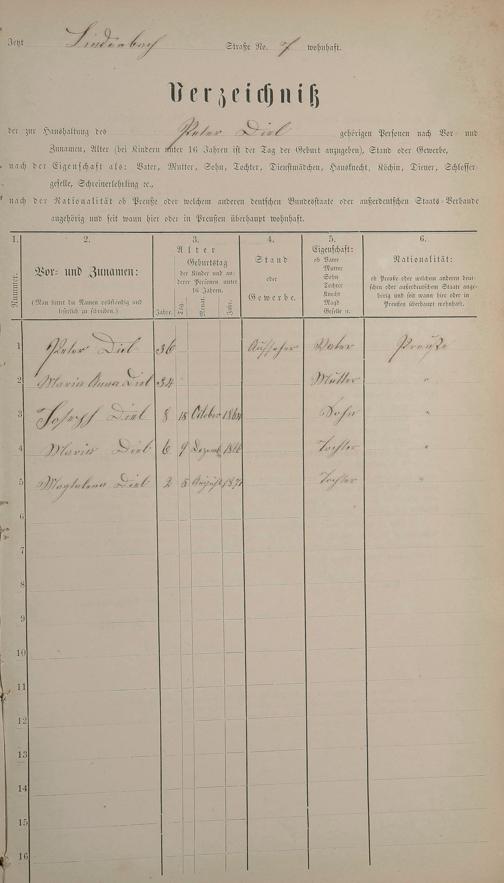 Jetzt Lindenbach Straße No. 7 wohnhaft.
Verzeichniß
der zur Haushaltung des Peter Diel gehörigen Personen nach Vor- und
Zunamen, Alter (bei Kindern unter 16 Jahren ist der Tag der Geburt anzugeben), Stand oder Gewerbe,
nach der Eigenschaft als: Vater, Mutter, Sohn, Tochter, Dienstmädchen, Hausknecht, Köchin, Diener, Schlosser-
geselle, Schreinerlehrling ec.,
nach der Nationalität ob Preuße oder welchem anderen deutschen Bundesstaate oder außerdeutschen Staats-Verbande
angehörig und seit wann hier oder in Preußen überhaupt wohnhaft.
1. 2. 3. 4. 5. 6.
Nummer.
Vor- und Zunamen:
(Man bittet die Namen vollständig und leserlich zu schreiben.)
Alter
Geburtstag
der Kinder und an-
derer Personen unter
16 Jahren.
Jahre. Tag. Monat. Jahr.
Stand
oder
Gewerbe.
Eigenschaft:
ob Vater
Mutter
Sohn
Tochter
Knecht
Magd
Geselle ec.
Nationalität:
ob Preuße oder welchem anderen deut-
schen oder außerdeutschen Staate ange-
hörig und seit wann hier oder in
Preußen überhaupt wohnhaft.
1 Peter Diel 36 Aufseher Vater Preuße
2 Maria Anna Diel 34 Mutter "
3 Joseph Diel 8 18 October 1864 Sohn "
4 Maria Diel 6 9 Dezemb. Tochter "
5 Magdalena Diel 2 8 August 1871 Tochter "
6
7
8
9
10
11
12
13
14
15
16